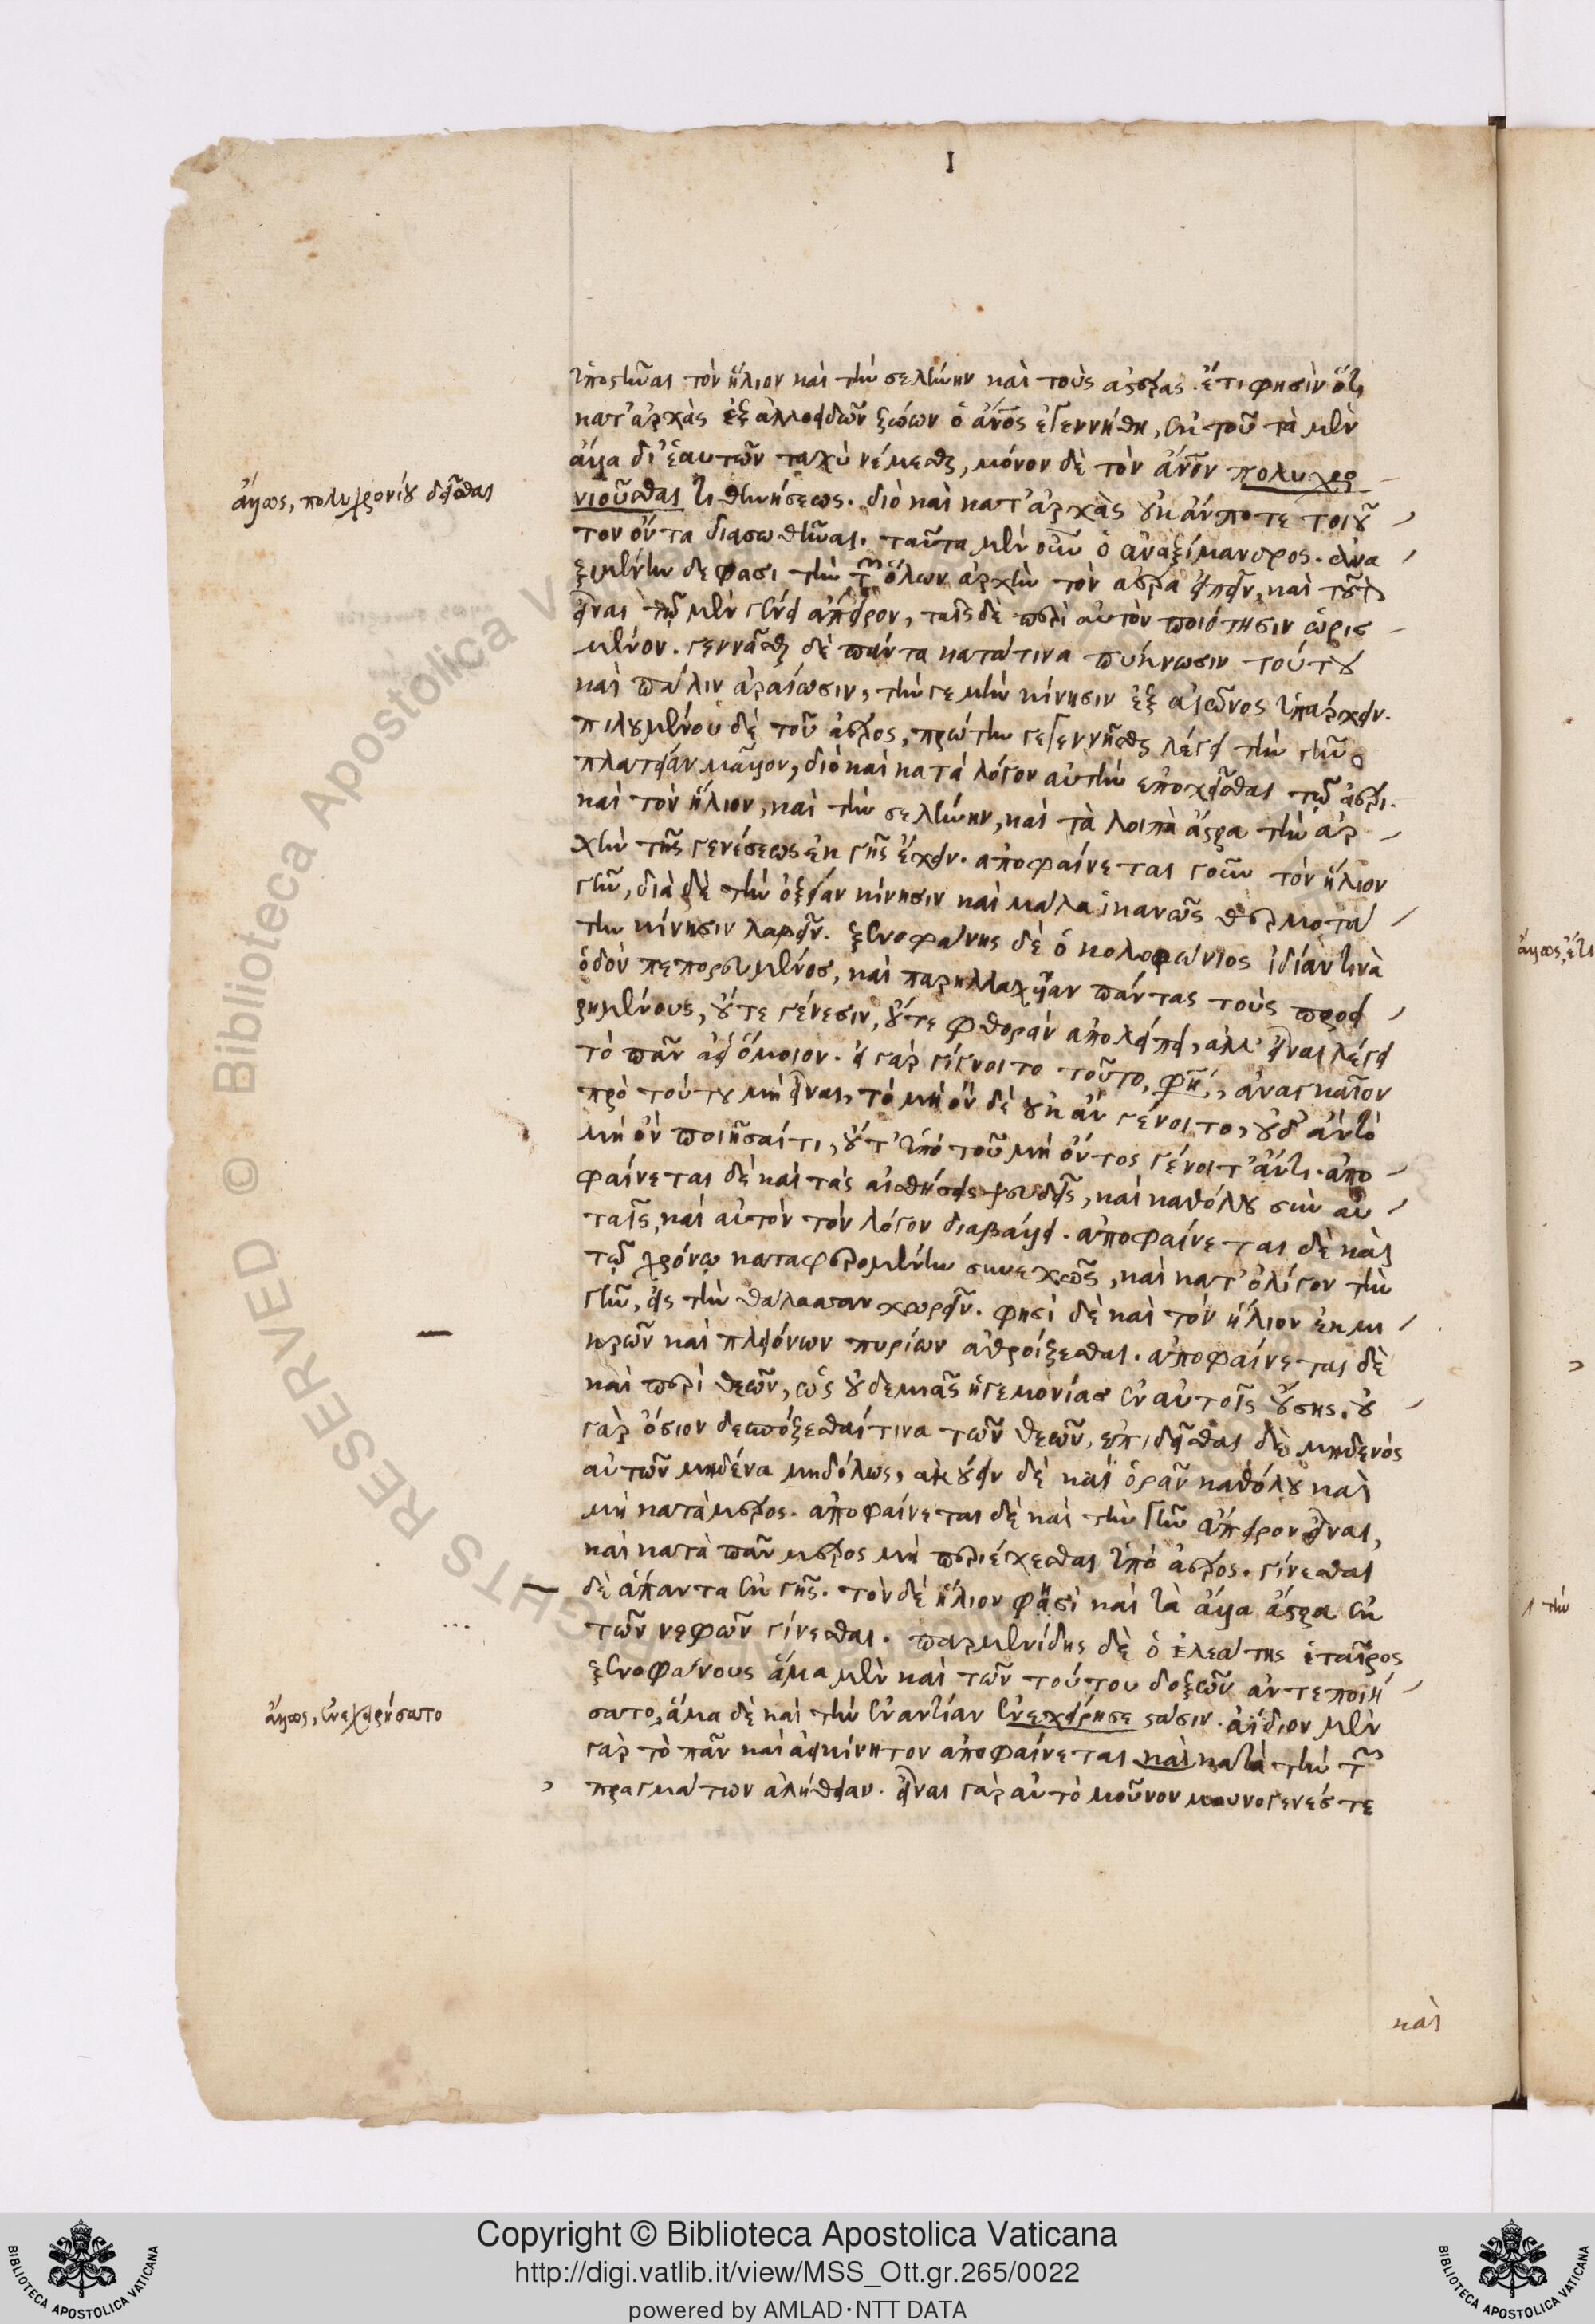 I
ὑποστῆναι τὸν ἥλιον καὶ τὴν σελήνην καὶ τοὺς ἀστέρας. ἔτι φησὶν ὅτι
κατ' ἀρχὰς ἐξ ἀλλοειδῶν ζώων ὁ ἄνος ἐγεννήθη, ἐκ τοῦ τὰ μὲν
ἄλλα δι' ἑαυτῶν ταχὺ νέμεσθαι, μόνον δὲ τὸν ἄνον πολυχρο
ἄλλως, πολυχρονίου δεῖσθαι
νιοῦσθαι τιθηνήσεως. διὸ καὶ κατ' ἀρχὰς οὐκ ἄν ποτε τοιοῦ
τον ὄντα διασωθῆναι. ταῦτα μὲν οὖν ὁ ἀναξίμανδρος. ἀνα
ξιμένην δέ φασι τὴν τῶν ὅλων ἀρχὴν τὸν ἀέρα εἰπεῖν, καὶ τοῦτον
εἶναι τῷ μὲν γένει ἄπειρον, ταῖς δὲ περὶ αὐτὸν ποιότησιν ὡρισ
μένον. γεννᾶσθαι δὲ πάντα κατά τινα πύκνωσιν τούτου
καὶ πάλιν ἀραίωσιν, τήν γε μὴν κίνησιν ἐξ αἰῶνος ὑπάρχειν.
πιλουμένου δὲ τοῦ ἀέρος, πρώτην γεγεννῆσθαι λέγει τὴν γῆν
πλατεῖαν μάλλον, διὸ καὶ κατὰ λόγον αὐτὴν ἐποχεῖσθαι τῷ ἀέρι.
καὶ τὸν ἥλιον, καὶ τὴν σελήνην, καὶ τὰ λοιπὰ ἄστρα τὴν ἀρ
χὴν τῆς γενέσεως ἐκ γῆς ἔχειν. ἀποφαίνεται γοῦν τὸν ἥλιον
γῆν, διὰ δὲ τὴν ὀξεῖαν κίνησιν καὶ μάλα ἱκανῶς θερμοτά
την κίνησιν λαβεῖν. ξενοφάνης δὲ ὁ κολοφώνιος ἰδίαν τινὰ
ὁδὸν πεπορευμένος, καὶ παρηλλαχυῖαν πάντας τοὺς προει
ρημένους, οὔτε γένεσιν, οὔτε φθορὰν ἀπολείπει, ἀλλ' εἶναι λέγει
τὸ πᾶν ἀεὶ ὅμοιον. εἰ γὰρ γίγνοιτο τοῦτο, φη, ἀναγκαῖον
πρὸ τούτου μὴ εἶναι, τὸ μὴ ὂν δὲ οὐκ ἂν γένοιτο, οὐδ' ἂν τὸ
μὴ ὂν ποιήσαί τι, οὔτ' ὑπὸ τοῦ μὴ ὄντος γένοιτ' ἄν τι. ἀπο
φαίνεται δὲ καὶ τὰς αἰσθήσεις ψευδεῖς, καὶ καθόλου σὺν αὐ
ταῖς, καὶ αὐτὸν τὸν λόγον διαβάλλει. ἀποφαίνεται δὲ καὶ
τῷ χρόνῳ καταφερομένην συνεχῶς, καὶ κατ' ὀλίγον τὴν
γῆν, εἰς τὴν θάλασσαν χωρεῖν. φησὶ δὲ καὶ τὸν ἥλιον ἐκ μι
κρῶν καὶ πλειόνων πυρίων ἀθροίζεσθαι. ἀποφαίνεται δὲ
καὶ περὶ θεῶν, ὡς οὐδεμιᾶς ἡγεμονίας ἐν αὐτοῖς οὔσης. οὐ
γὰρ ὅσιον δεσπόζεσθαί τινα τῶν θεῶν, ἐπιδεῖσθαι δὲ μηδενὸς
αὐτῶν μηδένα μηδόλως, ἀκούειν δὲ καὶ ὁρᾶν καθόλου καὶ
μὴ κατὰ μέρος. ἀποφαίνεται δὲ καὶ τὴν γῆν ἄπειρον εἶναι,
καὶ κατὰ πᾶν μέρος μὴ περιέχεσθαι ὑπὸ ἀέρος. γίνεσθαι
δὲ ἅπαντα ἐκ γῆς. τὸν δὲ ἥλιον φησὶ καὶ τὰ ἄλλα ἄστρα ἐκ
τῶν νεφῶν γίνεσθαι. παρμενίδης δὲ ὁ ἐλεάτης ἑταῖρος
ξενοφάνους ἅμα μὲν καὶ τῶν τούτου δοξῶν ἀντεποιή
ἄλλως, ἐνεχειρήσατο
σατο, ἅμα δὲ καὶ τὴν ἐναντίαν ἐνεχείρησε στάσιν. ἀΐδιον μὲν
γὰρ τὸ πᾶν καὶ ἀκίνητον ἀποφαίνεται καὶ κατὰ τὴν τῶν
πραγμάτων ἀλήθειαν. εἶναι γὰρ αὐτὸ μοῦνον μουνογενές τε
καὶ
ἄλλως, ἔτι
τὴν
Copyright © Biblioteca Apostolica Vaticana
http://digi.vatlib.it/view/MSS_Ott.gr.265/0022
powered by AMLAD·NTT DATA
BIBLIOTECA APOSTOLICA VATICANA
BIBLIOTECA APOSTOLICA VATICANA